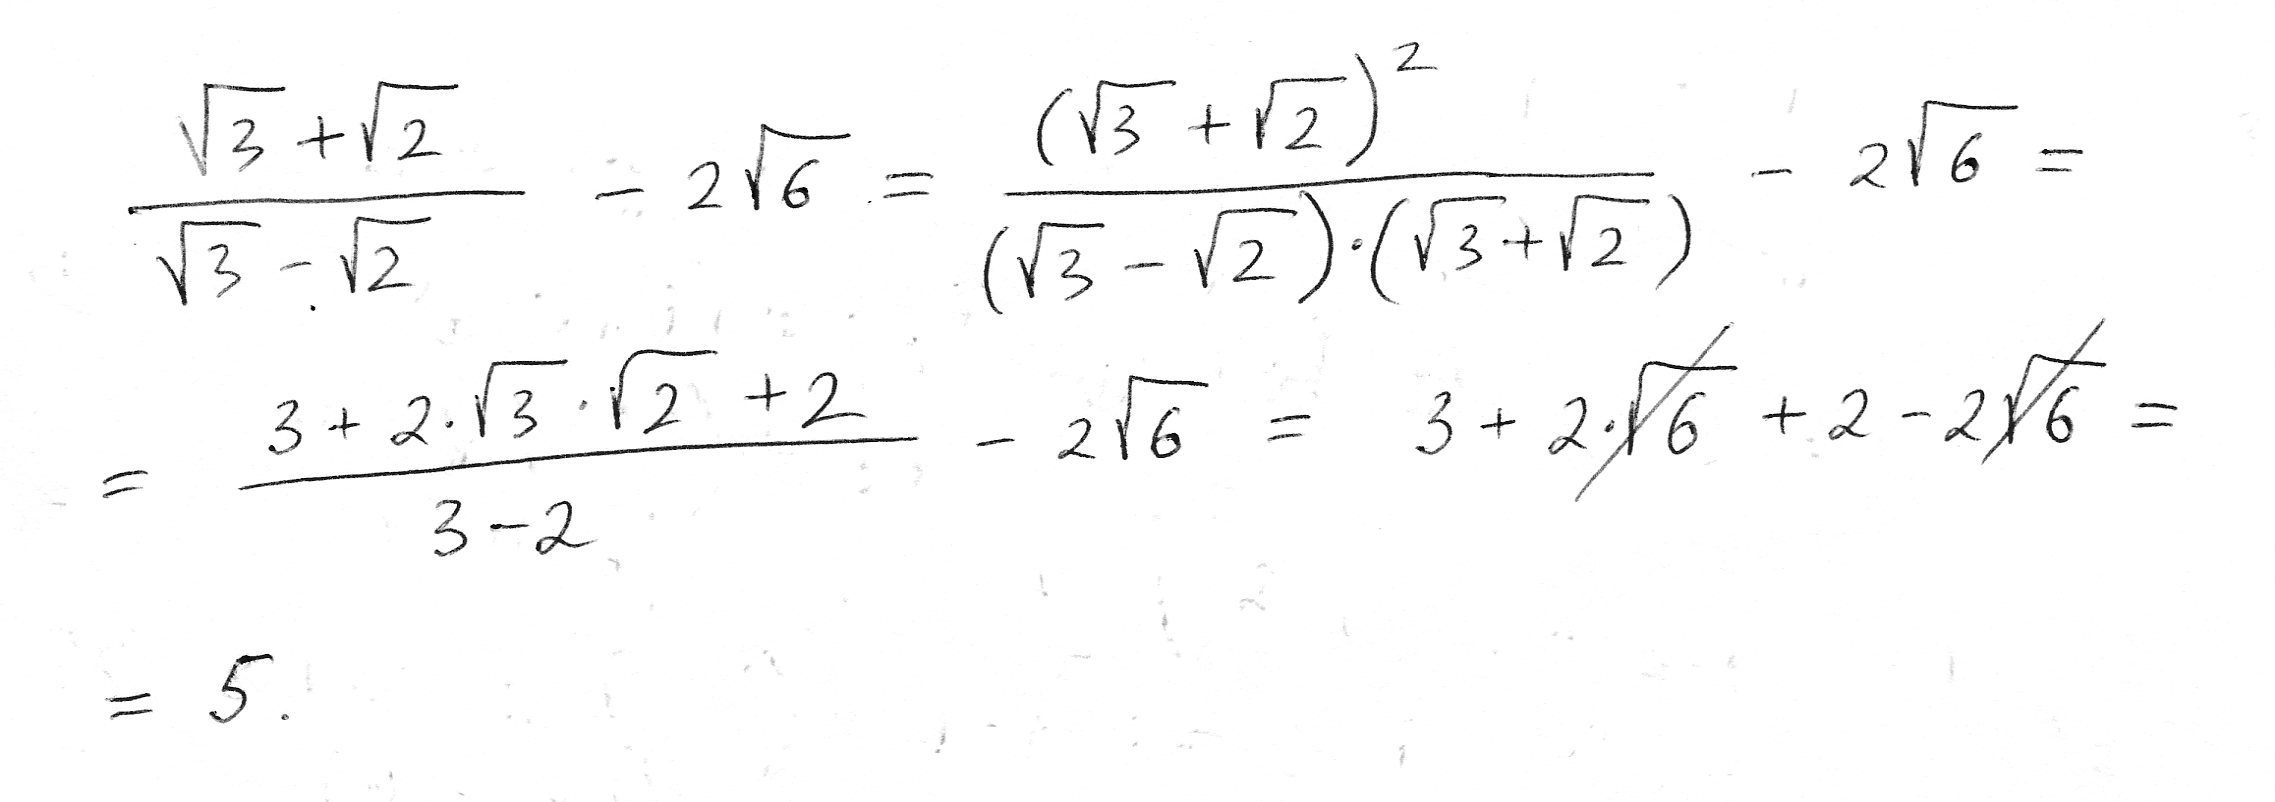 (√3 + √2)/(√3 - √2) - 2√6 = (√3 + √2)²/((√3 - √2)·(√3 + √2)) - 2√6 =
= (3 + 2·√3·√2 + 2)/(3 - 2) - 2√6 = 3 + 2·√6 + 2 - 2√6 =
= 5.